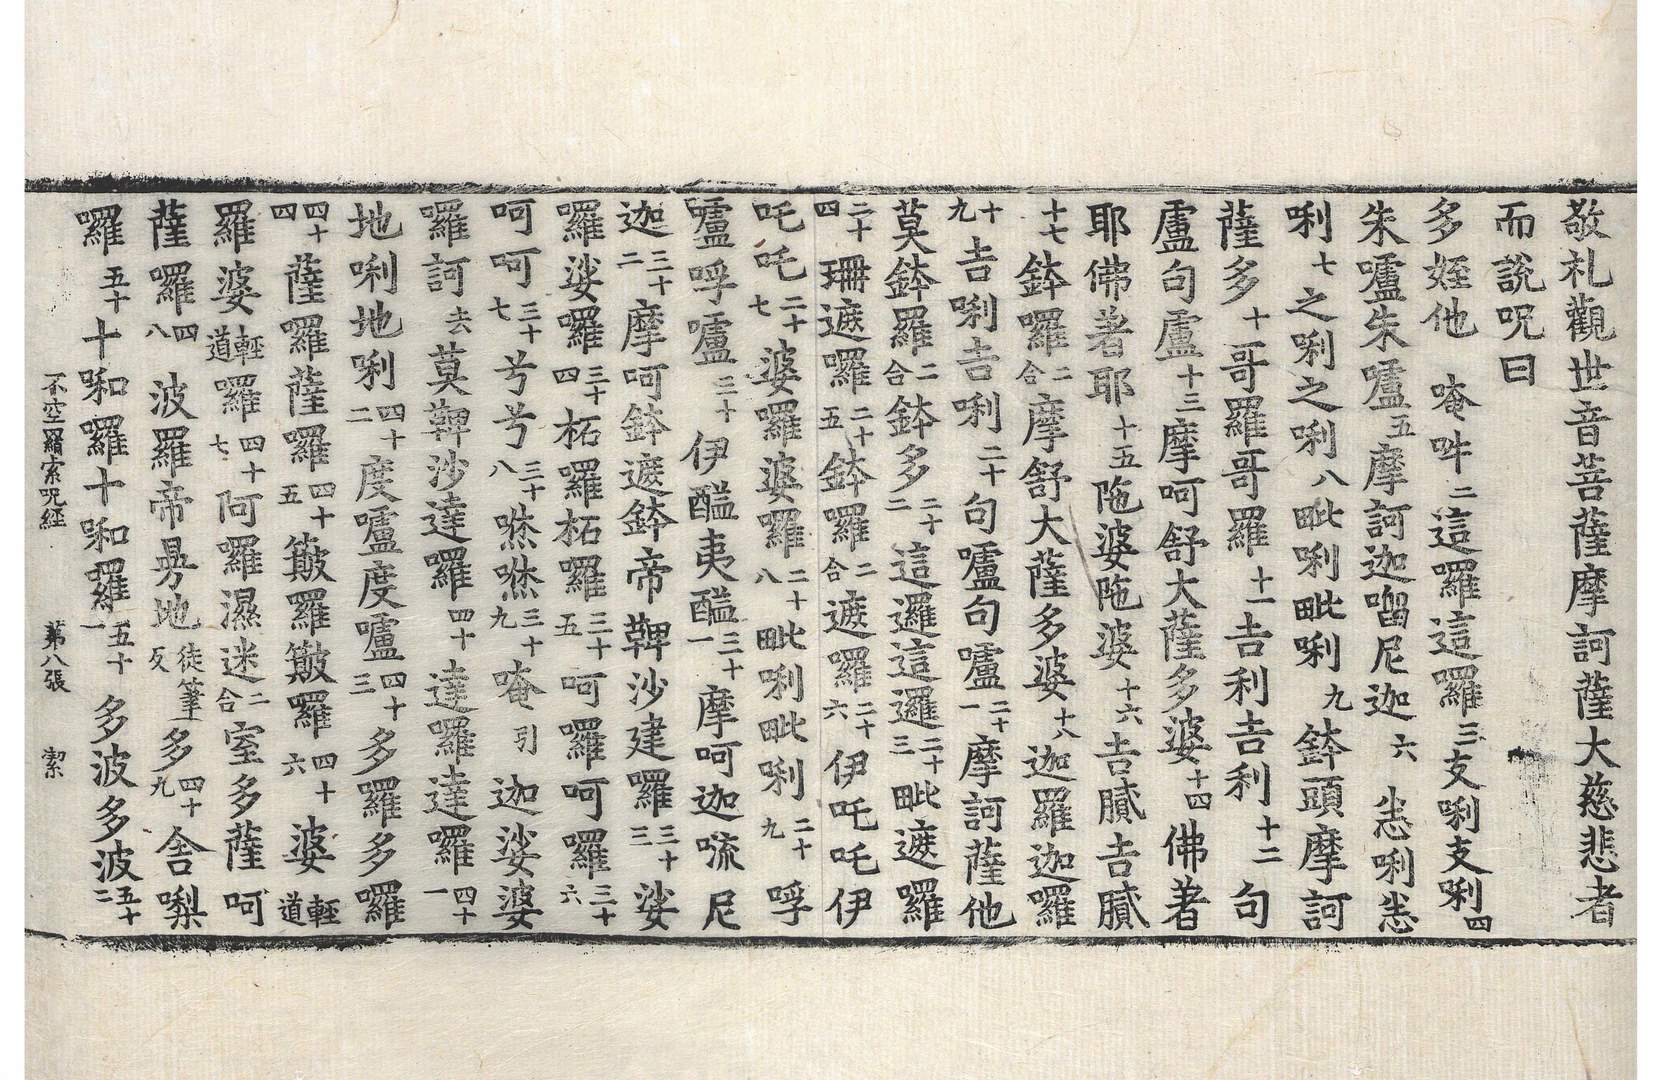 敬礼觀世音菩薩摩訶薩大慈悲者
而說呪曰
多姪他 唵吽二這羅這羅三支唎支唎四
朱嚧朱嚧五摩訶迦嚪尼迦六 恙唎恙
唎七之唎之唎八毗唎毗唎九鉢頭摩訶
薩多十哥羅哥羅十一吉利吉利十二 句
盧句盧十三摩呵舒大薩多婆十四佛著
耶佛著耶十五陁婆陁婆十六吉膩吉膩
十七鉢囉二合摩舒大薩多婆十八迦羅迦囉
十九吉唎吉唎二十句嚧句嚧二十一摩訶薩他
莫鉢羅二合鉢多二十二這邏這邏二十三毗遮囉
二十四珊遮囉二十五鉢囉二合遮羅二十六伊吒吒伊
吒吒二十七婆羅婆囉二十八毗唎毗唎二十九 呼
嚧呼嚧三十 伊醯夷醯三十一摩呵迦𠺕尼
迦三十二摩呵鉢遮鉢帝鞞沙建囉三十三娑
囉娑囉三十四柘囉柘囉三十五呵囉呵囉三十六
呵呵三十七兮兮三十八呠呠三十九唵引 迦娑婆
囉訶去莫鞞沙達囉四十達羅達囉四十一
地唎地唎四十二度嚧度嚧四十三多羅多羅
四十四薩囉薩囉四十五簸羅簸囉四十六婆輕道
羅婆輕道囉四十七阿羅濕迷二合室多薩呵
薩囉四八波羅帝㝵地徒筆反多四十九舍㗚
囉五十十啝囉十和羅五十一多波多波五十二
不空羂索呪經 第八張 㓗